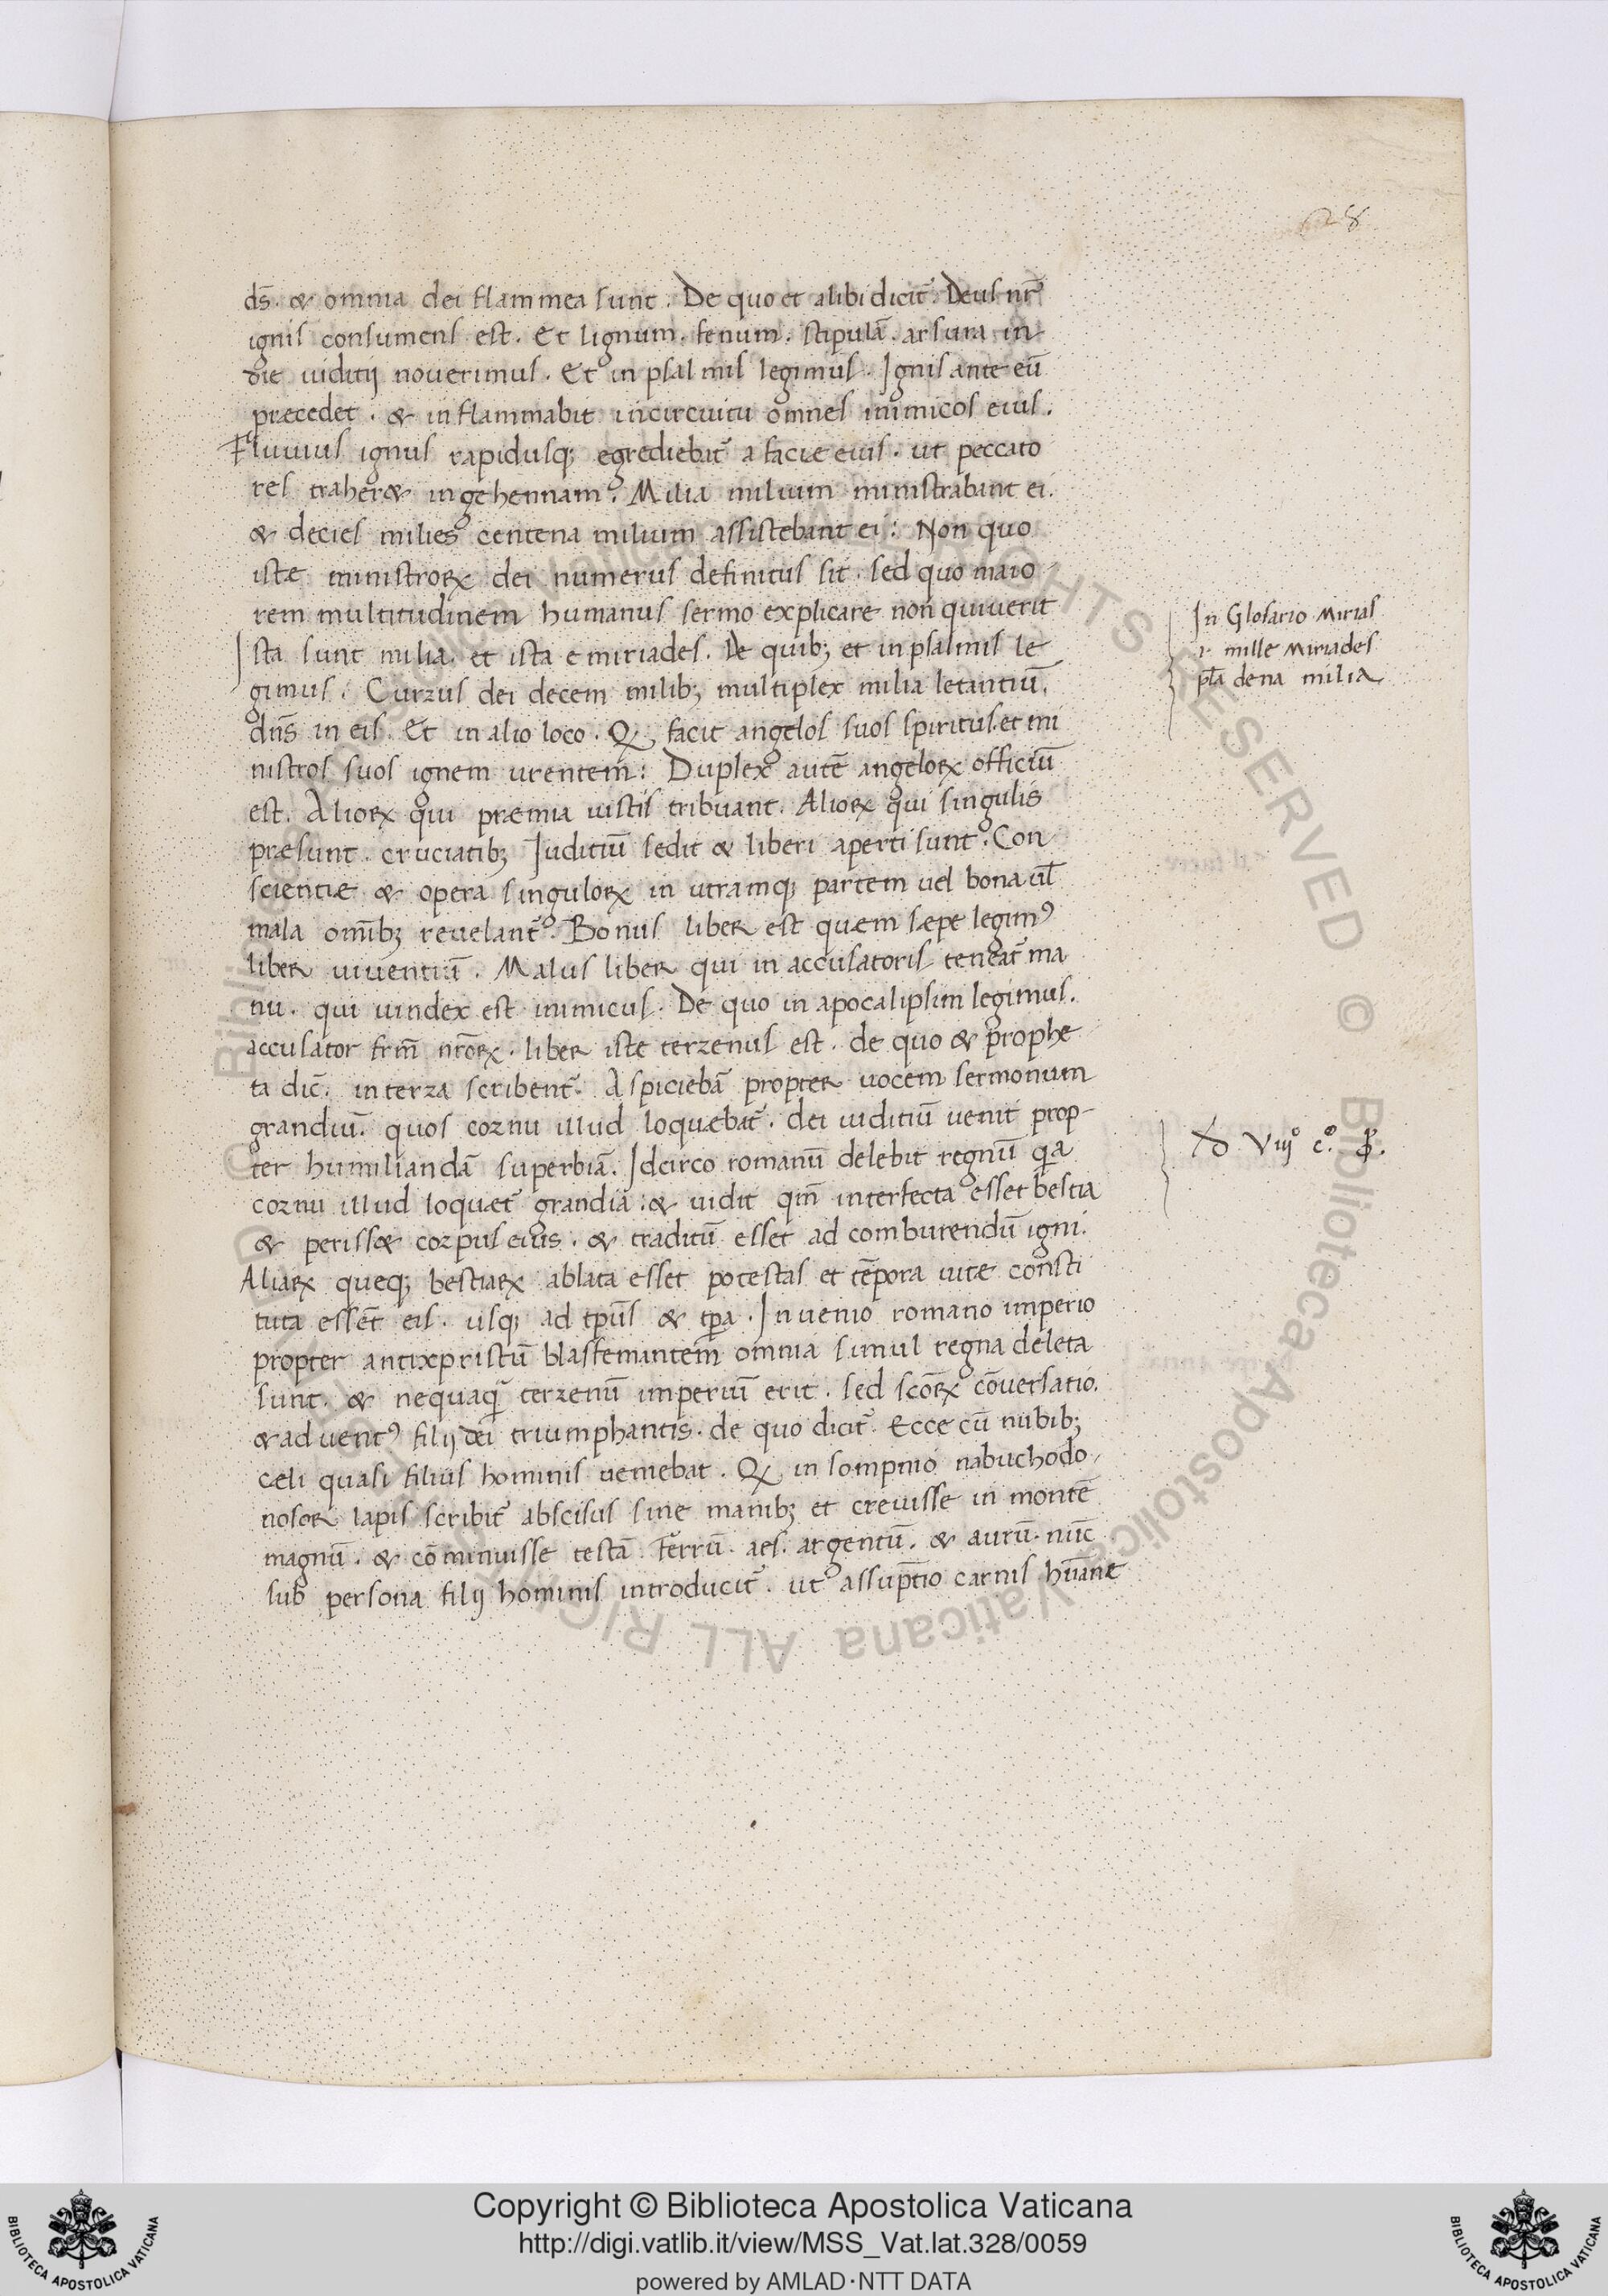 28
ds̄. & omnia dei flammea sunt. De quo et alibi dicit̄. Deus nr̄
ignis consumens est. Et lignum. fenum. stipulā. arsura in
die iuditij noverimus. Et in psalmis legimus. Ignis ante eū
præcedet. & inflammabit incircuitu omnes inimicos eius.
Fluvius ignis rapidusq; egrediebat̄ a facie eius. ut peccato
res traher& in gehennam. Milia milium ministrabant ei.
& decies milies centena milium assistebant ei: Non quo
iste ministroꝝ dei numerus definitus sit. sed quo maio
rem multitudinem humanus sermo explicare non quiverit
Ista sunt milia. et ista e miriades. De quib; et in psalmis le
gimus. Curzus dei decem milib; multiplex milia letantiū.
dn̄s in eis. Et in alio loco. Q facit angelos suos spiritus. et mi
nistros suos ignem urentem: Duplex autē angeloꝝ officiū
est. Alioꝝ qui præmia iustis tribuant. Alioꝝ qui singulis
præsunt. cruciatib; Iuditiū sedit & liberi aperti sunt. Con
scientiæ & opera singuloꝝ in utramq; partem vel bona ūl
mala omīb; revelant̄. Bonus liber est quem sæpe legimꝰ
liber viventiū. Malus liber qui in accusatoris teneat̄ ma
nu. qui vindex est inimicus. De quo in apocalipsim legimus.
accusator frm̄ nr̄oꝝ. liber iste terzenus est. de quo & prophe
ta dic̄. in terza scribent̄. Aspiciebā propter vocem sermonum
grandiū. quos coznu illud loquebat̄. dei iuditiū venit prop-
ter humiliandā superbiā. Idcirco romanū delebit regnū qa
coznu illud loquet̄ grandia: & vidit qm̄ interfecta esset bestia
& periss& cozpus eius. & traditū esset ad comburendū igni.
Aliaꝝ queq; bestiaꝝ ablata esset potestas et tēpora vitæ consti
tuta essēt eis. usq; ad tp̄us & tp̄a. In uenio romano imperio
propter antixpristū blasfemantem omnia simul regna deleta
sunt. & nequaq̄ terzenū imperiū erit. sed scōꝝ cōversatio.
& adventꝰ filij dei triumphantis. de quo dicit̄. Ecce cū nubib;
celi quasi filius hominis veniebat. Q in sompnio nabuchodo
nosor lapis scribit̄ abscisus sine manib; et crevisse in montē
magnū. & cōminuisse testā. ferrū. aes. argentū. & aurū. nūc
sub persona filij hominis introducit̄. ut assūptio carnis hūanæ
In Glosario Mirias
ı· mille Miriades
pl̄a dena milia
viijº cº.
Copyright © Biblioteca Apostolica Vaticana
http://digi.vatlib.it/view/MSS_Vat.lat.328/0059
powered by AMLAD·NTT DATA
BIBLIOTECA APOSTOLICA VATICANA
BIBLIOTECA APOSTOLICA VATICANA